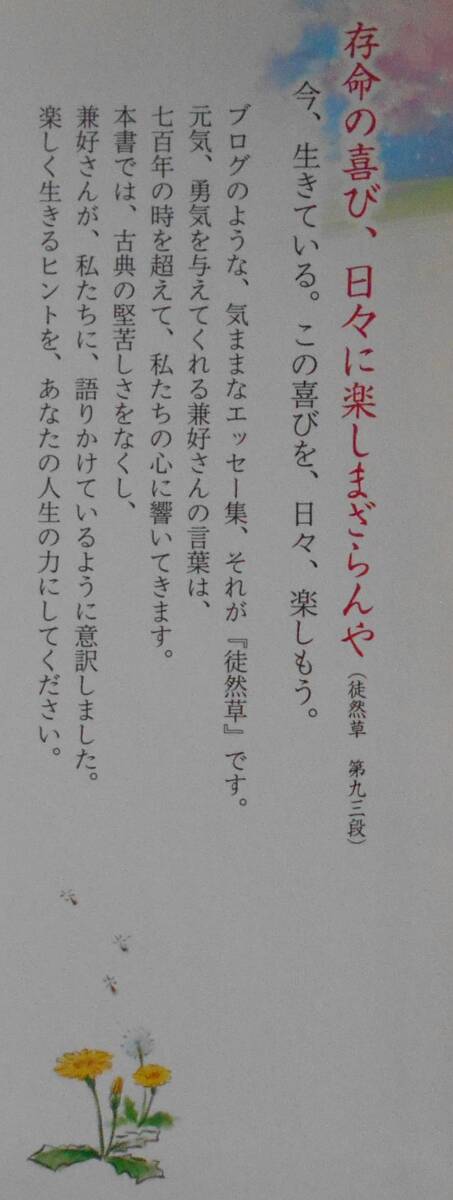 存命の喜び、日々に楽しまざらんや(徒然草　第九三段)
今、生きている。この喜びを、日々、楽しもう。
ブログのような、気ままなエッセー集、それが『徒然草』です。
元気、勇気を与えてくれる兼好さんの言葉は、
七百年の時を超えて、私たちの心に響いてきます。
本書では、古典の堅苦しさをなくし、
兼好さんが、私たちに、語りかけているように意訳しました。
楽しく生きるヒントを、あなたの人生の力にしてください。